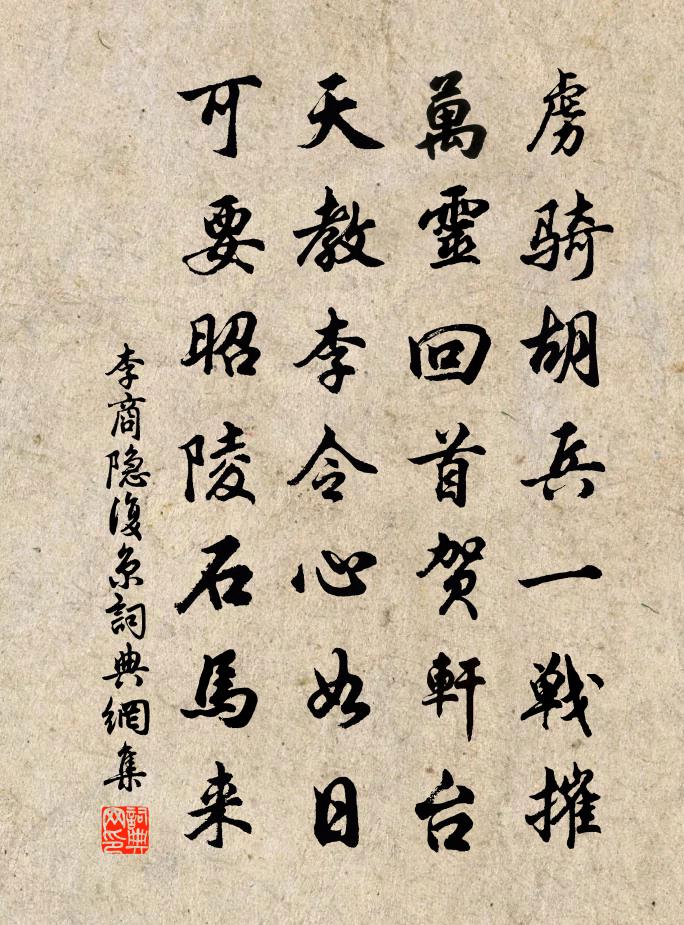 虏骑胡兵一战摧
萬靈回首贺軒台
天教李令心如日
可要昭陵石馬来
李商隐復京詞典網集
詞典网印